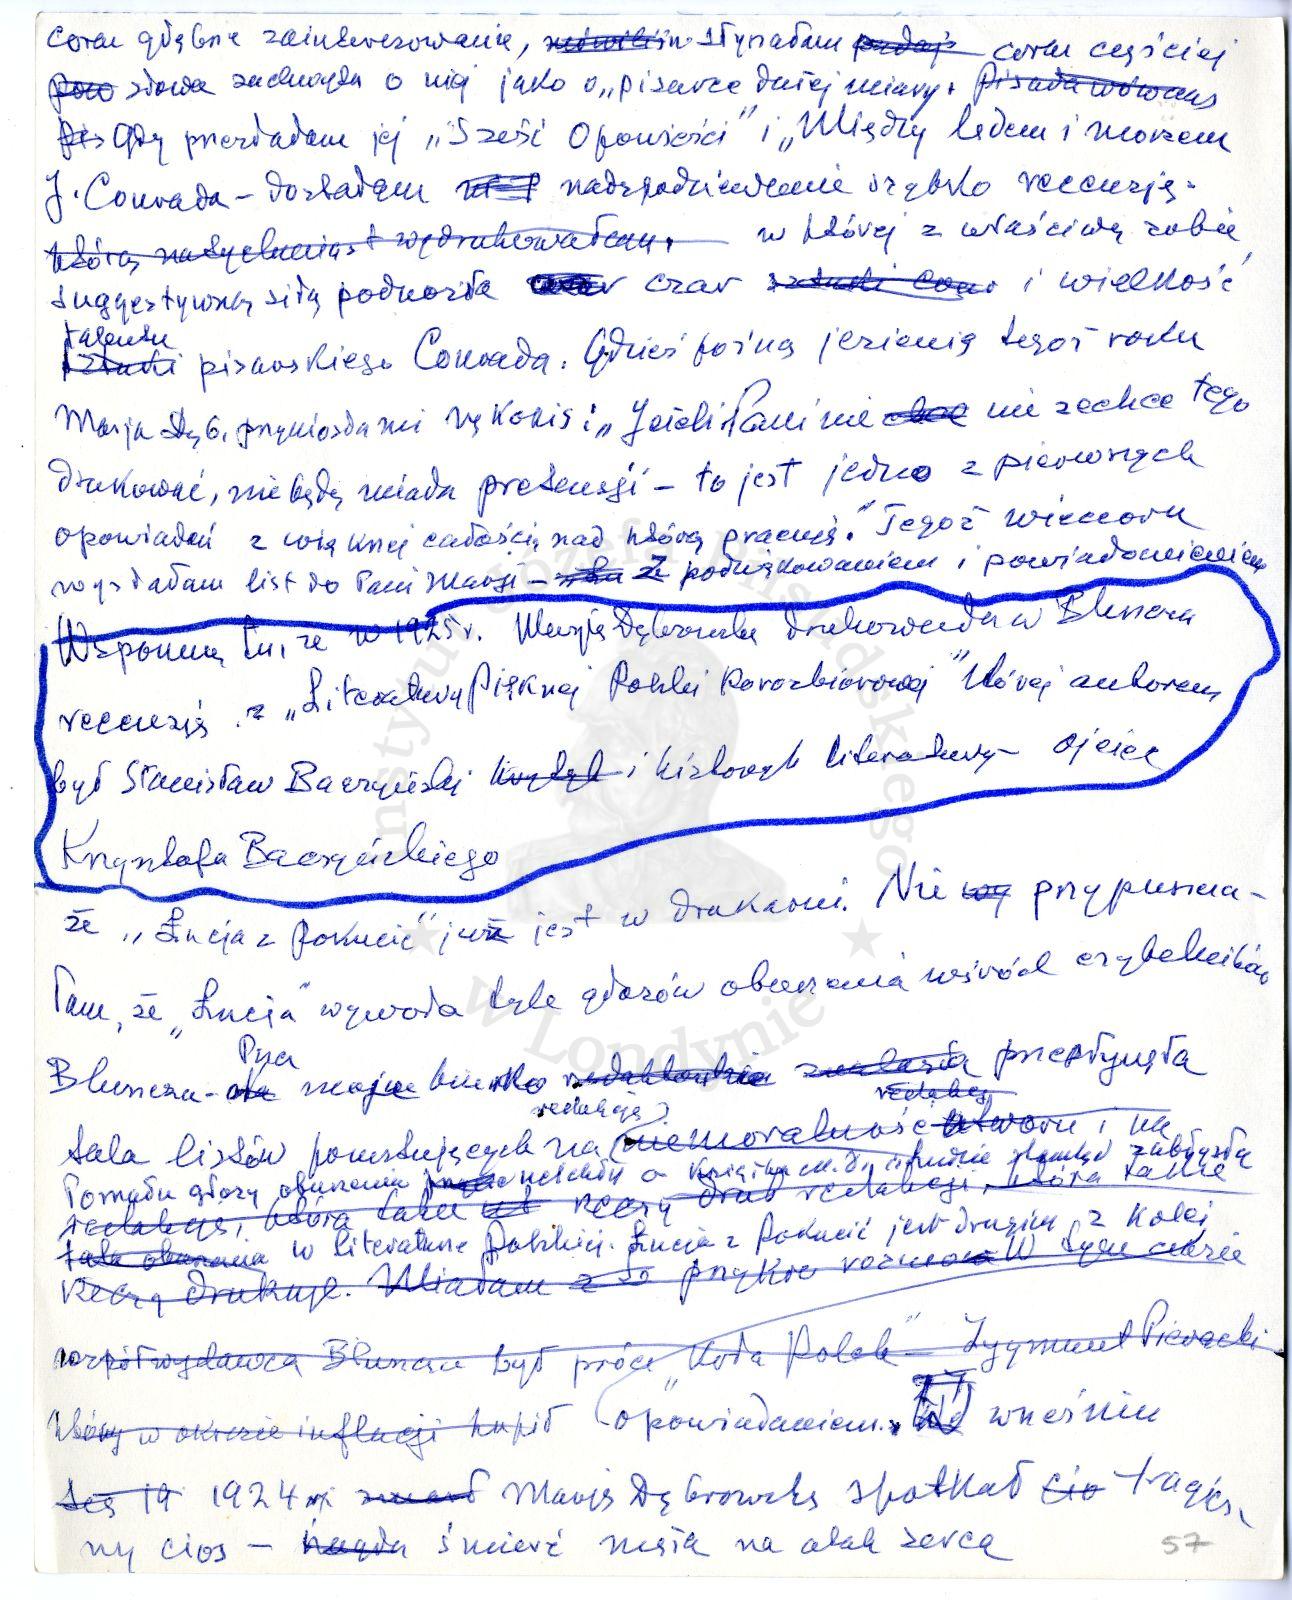 coraz głębsze zainteresowanie, słyszałam coraz częściej
słowa zachwytu o niej jako o „pisarce dużej miary.
Gdy przesłałam jej „Sześć Opowieści" i „Między lądem i morzem
J. Conrada – dostałam nadspodziewanie szybko recenzję.
którą natychmiast wydrukowałam. w której z właściwą sobie
suggestywną siłą podnosiła czar i wielkość
talentu
sztuki pisarskiego Conrada. Gdzieś późną jesienią tegoż roku
Marja Dąb. przyniosła mi rękopis: „Jeśli Pani nie nie zechce tego
drukować, nie będę miała pretensji – to jest jedno z pierwszych
opowiadań z większej całości, nad którą pracuję." Tegoż wieczoru
wysłałam list do Pani Marji – z podziękowaniem i powiadomieniem
Wspomnę tu, że w 1925 r. Marja Dąbrowska drukowała w Bluszczu
recenzję z „Literatury Pięknej Polski Porozbiorowej" której autorem
był Stanisław Baczyński krytyk i historyk literatury – ojciec
Krzysztofa Baczyńskiego
że „Łucja z Pokucic" już jest w drukarni. Nie przypuszcza-
łam, że „Łucja" wywoła tyle głosów oburzenia wśród czytelników
Bluszczu – moje biurko redaktorskie przepłynęła
redakcję
redakcji
fala listów pomstujących na niemoralność utworu i na
Pomału głosy oburzenia zabłysła
redakcję, która takie rzeczy
w literaturze polskiej. Łucja z Pokucic jest drugim z kolei
rzeczy drukuje. Miałam z W tym czasie
współwydawcą Bluszczu był prócz „Koła Polek" – Zygmunt Pieracki
który w okresie inflacji kupił opowiadaniem. wrześniu
1924 Marję Dąbrowską spotkał tragicz-
ny cios – śmierć męża na atak serca
57
Instytut Józefa Piłsudskiego
w Londynie